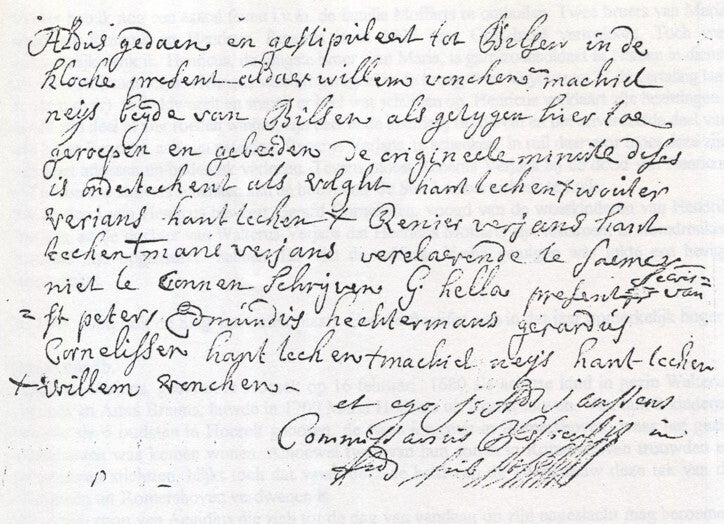 Aldus gedaen en gestipuleert tot Bilsen in de
kloche present aldaer willem vonchen machiel
neijs beyde van Bilsen als getygen hier toe
geroepen en gebeeden de origineele minute deses
is ondertechent als volght hanttechen + wouter
verjans hanttechen + Renier verjans hant
techen + mane verjans verclaerende te saemen
niet te connen schrijven G: hella present secris van
= st peters Edmundus hechtermans gerardus
Cornelissen hanttechen + machiel neijs hanttechen
+ willem vonchen
et ego Janssens
Commissarius in
sub